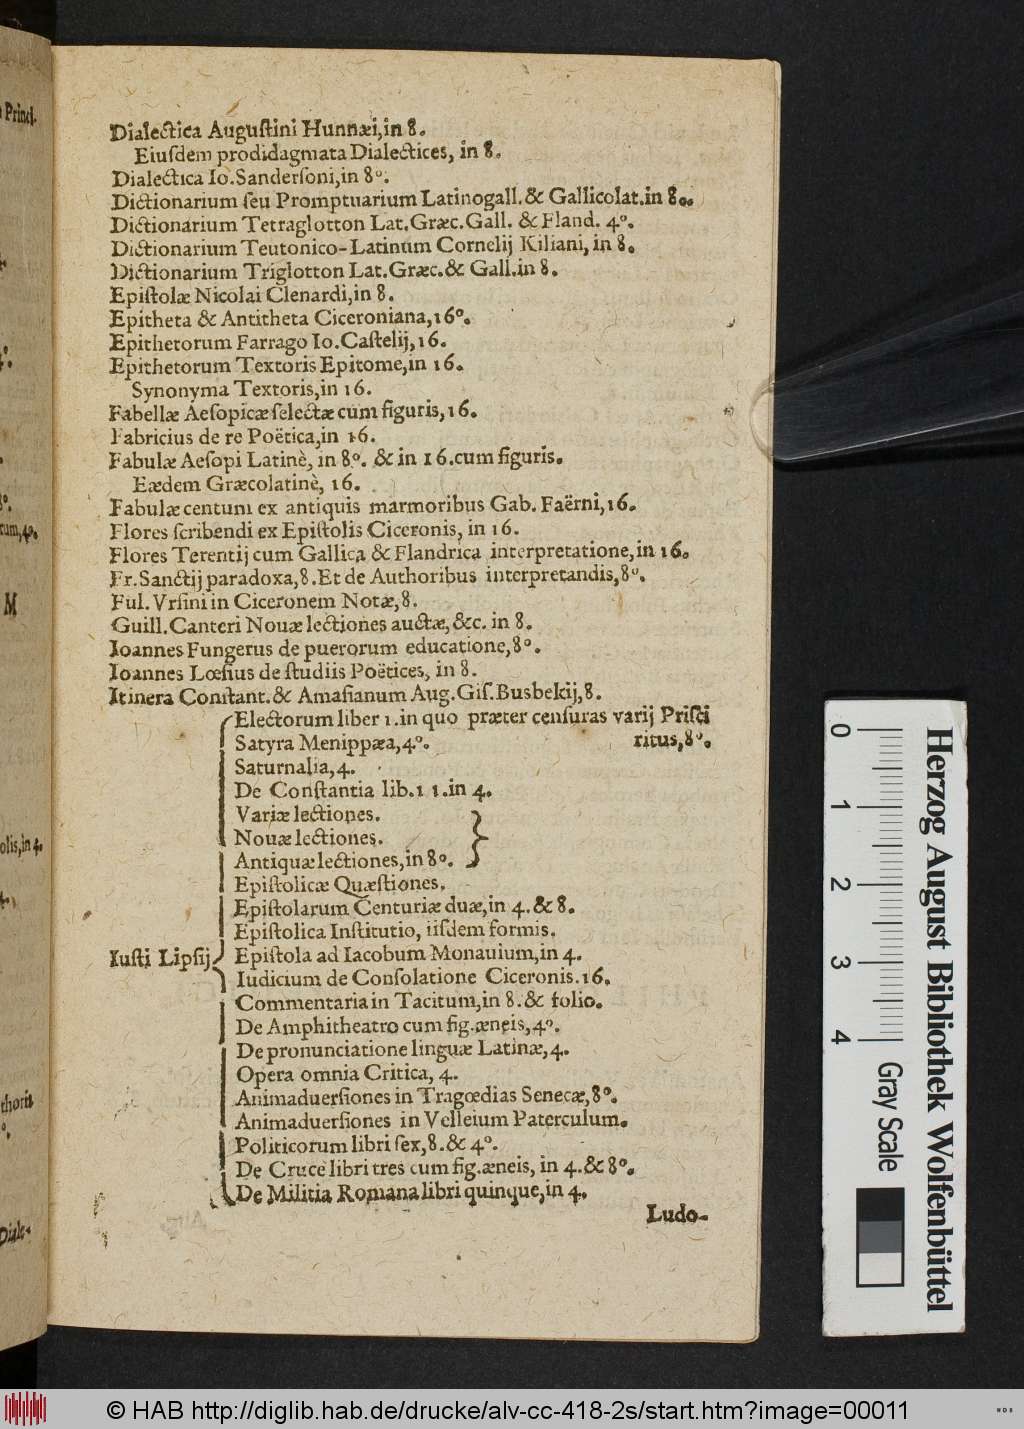 Princi.
Dialectica Augustini Hunnæi, in 8.
Eiusdem prodidagmata Dialectices, in 8.
Dialectica Io. Sandersoni, in 8º.
Dictionarium seu Promptuarium Latinogall. & Gallicolat. in 8º.
Dictionarium Tetraglotton Lat. Græc. Gall. & Fland. 4º.
Dictionarium Teutonico-Latinum Cornelij Kiliani, in 8.
Dictionarium Triglotton Lat. Græc. & Gall. in 8.
Epistolæ Nicolai Clenardi, in 8.
Epitheta & Antitheta Ciceroniana, 16º.
Epithetorum Farrago Io. Castelij, 16.
Epithetorum Textoris Epitome, in 16.
Synonyma Textoris, in 16.
Fabellæ Aesopicæ selectæ cum figuris, 16.
Fabricius de re Poëtica, in 16.
Fabulæ Aesopi Latinè, in 8º. & in 16. cum figuris.
Eædem Græcolatinè, 16.
Fabulæ centum ex antiquis marmoribus Gab. Faërni, 16.
Flores scribendi ex Epistolis Ciceronis, in 16.
Flores Terentij cum Gallica & Flandrica interpretatione, in 16.
Fr. Sanctij paradoxa, 8. Et de Authoribus interpretandis, 8º.
Ful. Vrsini in Ciceronem Notæ, 8.
Guill. Canteri Nouæ lectiones auctæ, &c. in 8.
Ioannes Fungerus de puerorum educatione, 8º.
Ioannes Lœsius de studiis Poëtices, in 8.
Itinera Constant. & Amasianum Aug. Gis. Busbekij, 8.
Electorum liber 1. in quo præter censuras varij Prisci
Satyra Menippæa, 4º. ritus, 8º.
Saturnalia, 4.
De Constantia lib. 11. in 4.
Variæ lectiones.
Nouæ lectiones.
Antiquæ lectiones, in 8º.
Epistolicæ Quæstiones.
Epistolarum Centuriæ duæ, in 4. & 8.
Epistolica Institutio, iisdem formis.
Iusti Lipsij Epistola ad Iacobum Monauium, in 4.
Iudicium de Consolatione Ciceronis. 16.
Commentaria in Tacitum, in 8. & folio.
De Amphitheatro cum fig. æneis, 4º.
De pronunciatione linguæ Latinæ, 4.
Opera omnia Critica, 4.
Animaduersiones in Tragœdias Senecæ, 8º.
Animaduersiones in Velleium Paterculum.
Politicorum libri sex, 8. & 4º.
De Cruce libri tres cum fig. æneis, in 4. & 8º.
De Militia Romana libri quinque, in 4.
Ludo-
0 1 2 3 4
Gray Scale
Herzog August Bibliothek Wolfenbüttel
© HAB http://diglib.hab.de/drucke/alv-cc-418-2s/start.htm?image=00011